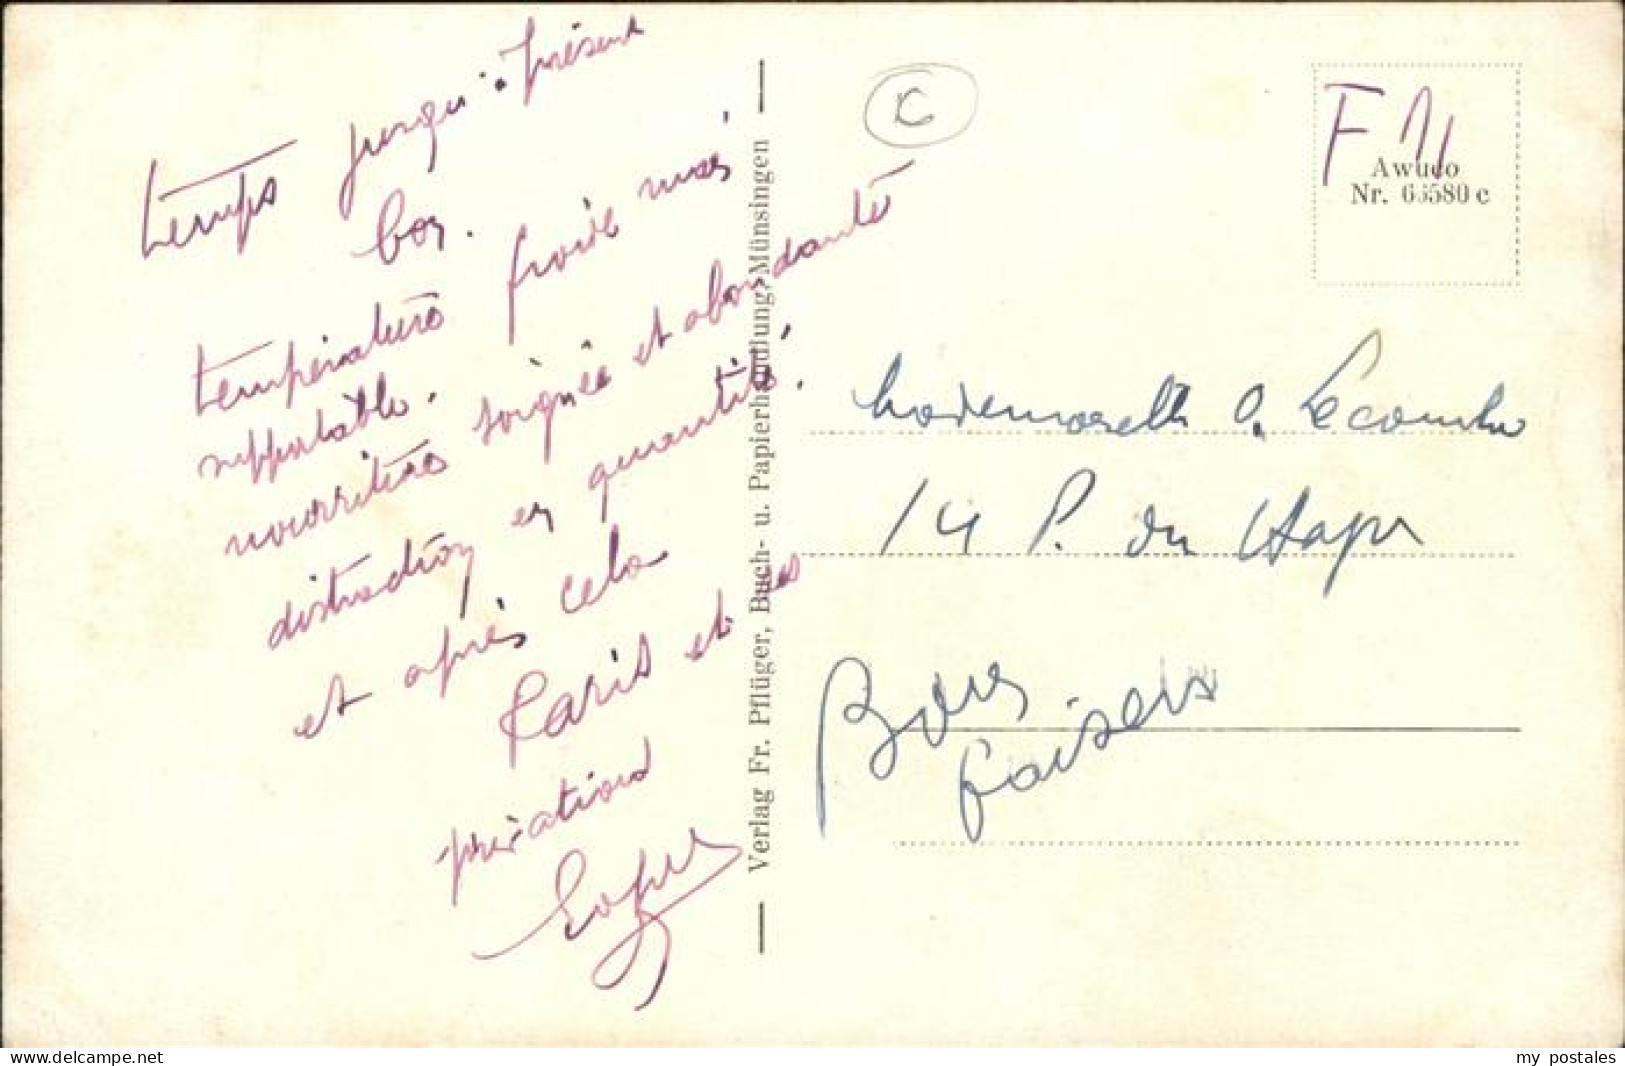 temps jusqu'à présent
bon.
température froide mais
supportable.
nourriture soignée et abondante
distraction en quantité.
et après cela
Paris et ses
privations
Verlag Fr. Pflüger, Buch- u. Papierhandlung, Münsingen
C
F 11
Awuco
Nr. 65580 c
Mademoiselle O. Lecomte
14 P. du
Bons
baisers
www.delcampe.net
my postales